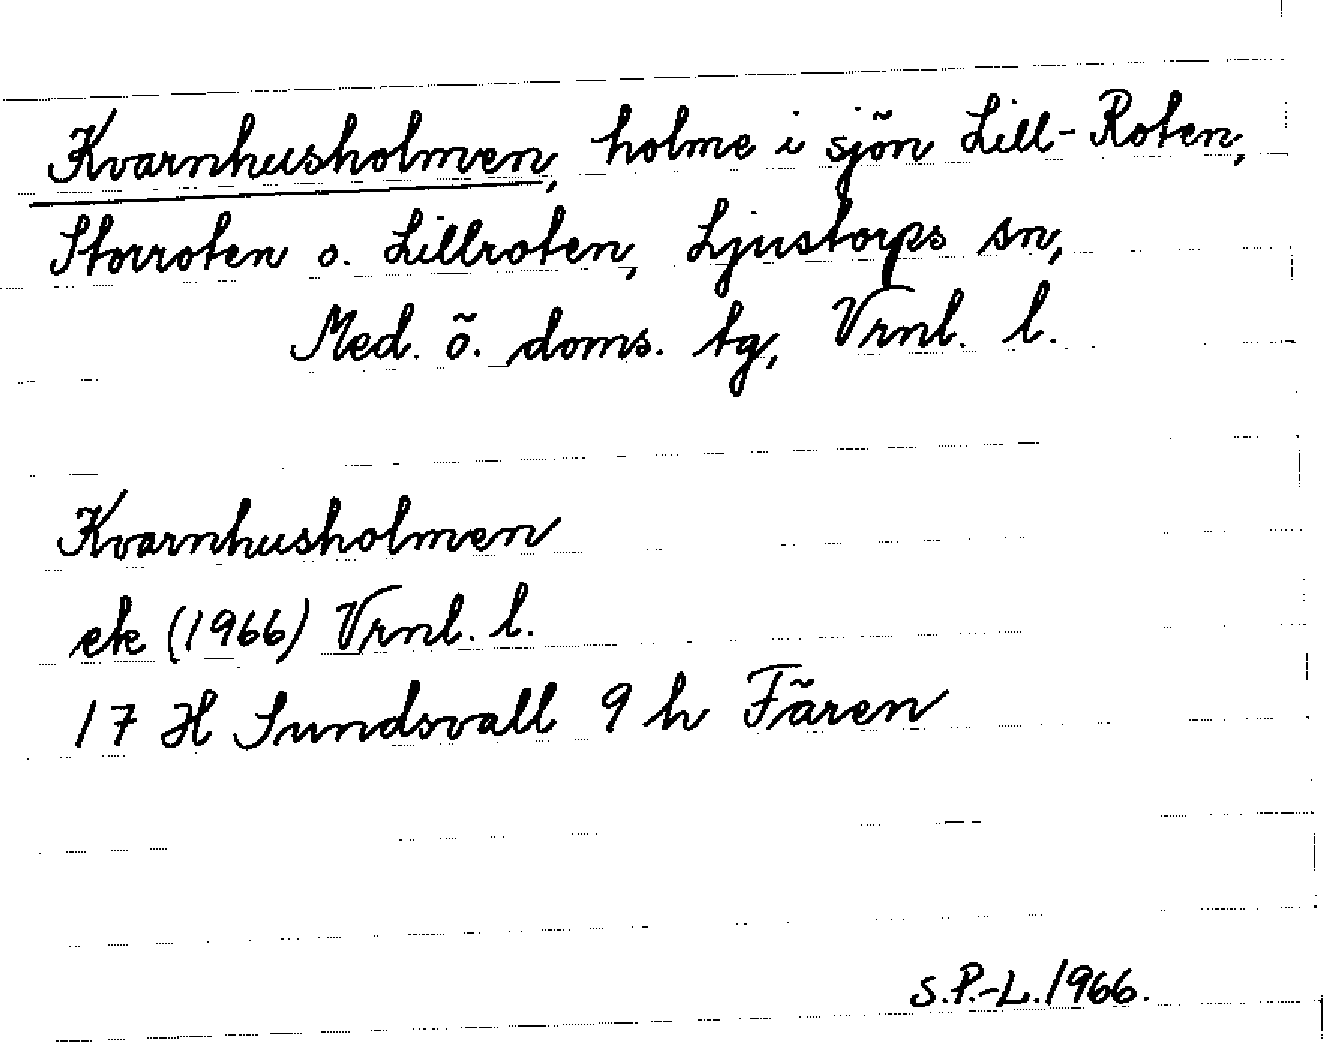 Kvarnhusholmen, holme i sjön Lill-Roten,
Storroten o. Lillroten, Ljustorps sn,
Med. ö. doms. tg, Vrnl. l.
Kvarnhusholmen
ek (1966) Vrnl. l.
17 H Sundsvall 9 h Fären
S.P.-L. 1966.